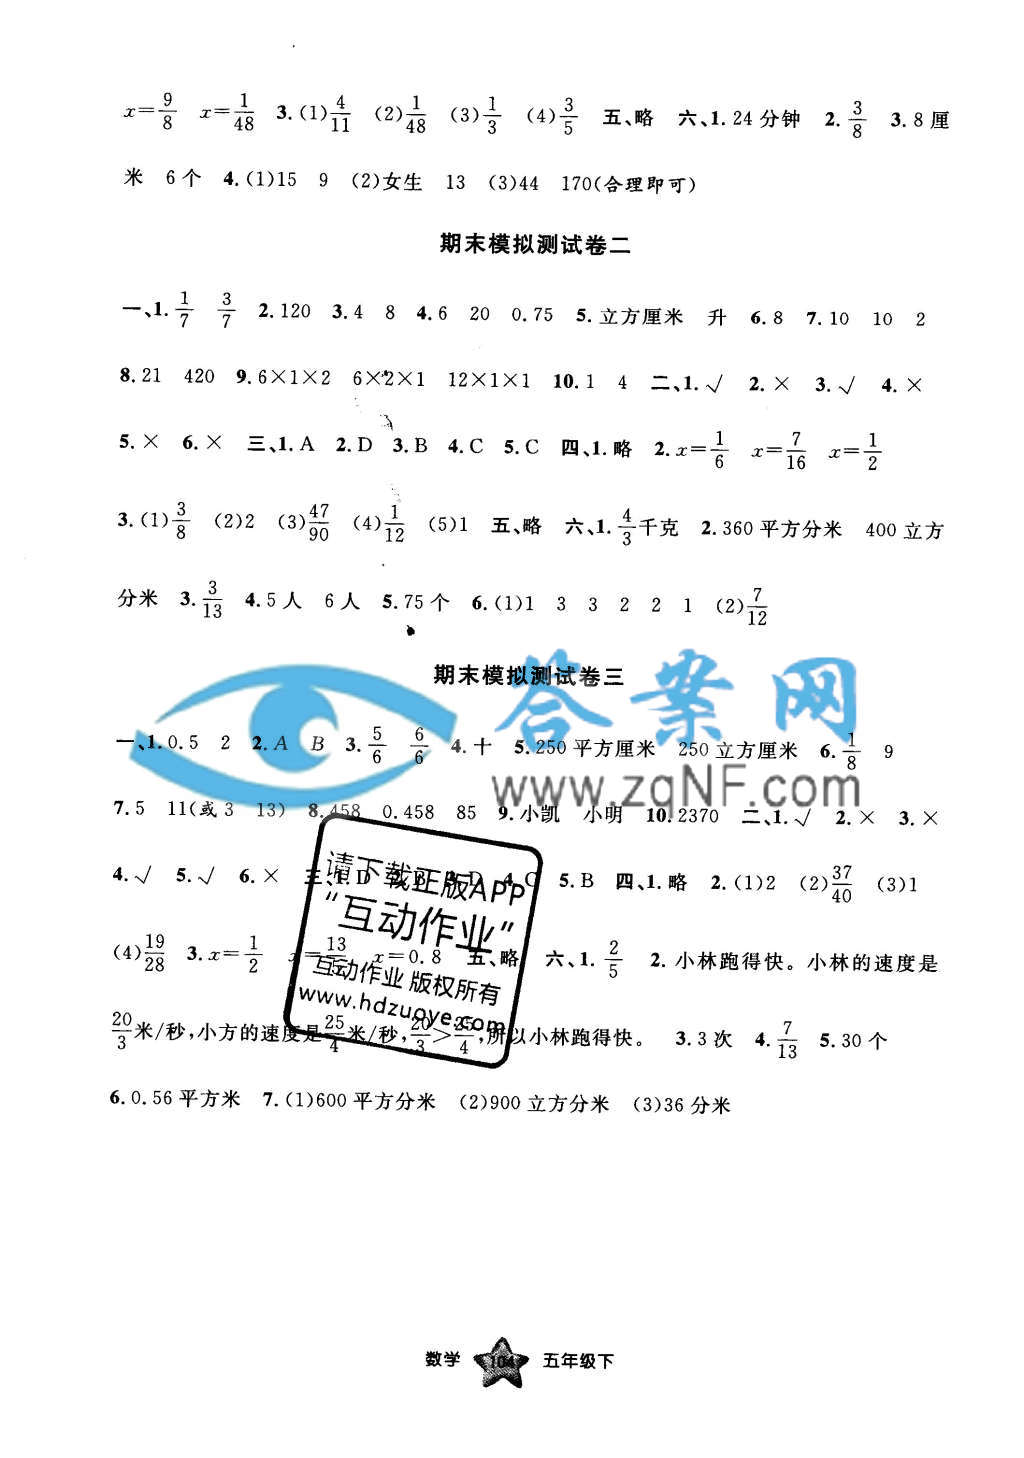 x=9/8 x=1/48 3.(1)4/11 (2)1/48 (3)1/3 (4)3/5 五、略 六、1.24分钟 2.3/8 3.8厘
米 6个 4.(1)15 9 (2)女生 13 (3)44 170(合理即可)
期末模拟测试卷二
一、1.1/7 3/7 2.120 3.4 8 4.6 20 0.75 5.立方厘米 升 6.8 7.10 10 2
8.21 420 9.6×1×2 6×2×1 12×1×1 10.1 4 二、1.√ 2.× 3.√ 4.×
5.× 6.× 三、1.A 2.D 3.B 4.C 5.C 四、1.略 2.x=1/6 x=7/16 x=1/2
3.(1)3/8 (2)2 (3)47/90 (4)1/12 (5)1 五、略 六、1.4/3千克 2.360平方分米 400立方
分米 3.3/13 4.5人 6人 5.75个 6.(1)1 3 3 2 2 1 (2)7/12
期末模拟测试卷三
答案网
www.zqNF.com
一、1.0.5 2 2.A B 3.5/6 6/6 4.十 5.250平方厘米 250立方厘米 6.1/8 9
7.5 11(或3 13) 8.458 0.458 85 9.小凯 小明 10.2370 二、1.√ 2.× 3.×
4.√ 5.√ 6.× 三、1.D 2.B 3.D 4.C 5.B 四、1.略 2.(1)2 (2)37/40 (3)1
(4)19/28 3.x=1/2 x=13/ x=0.8 五、略 六、1.2/5 2.小林跑得快。小林的速度是
20/3米/秒,小方的速度是25/4米/秒,20/3>25/4,所以小林跑得快。 3.3次 4.7/13 5.30个
6.0.56平方米 7.(1)600平方分米 (2)900立方分米 (3)36分米
请下载正版APP
“互动作业”
互动作业 版权所有
www.hdzuoye.com
数学 104 五年级下